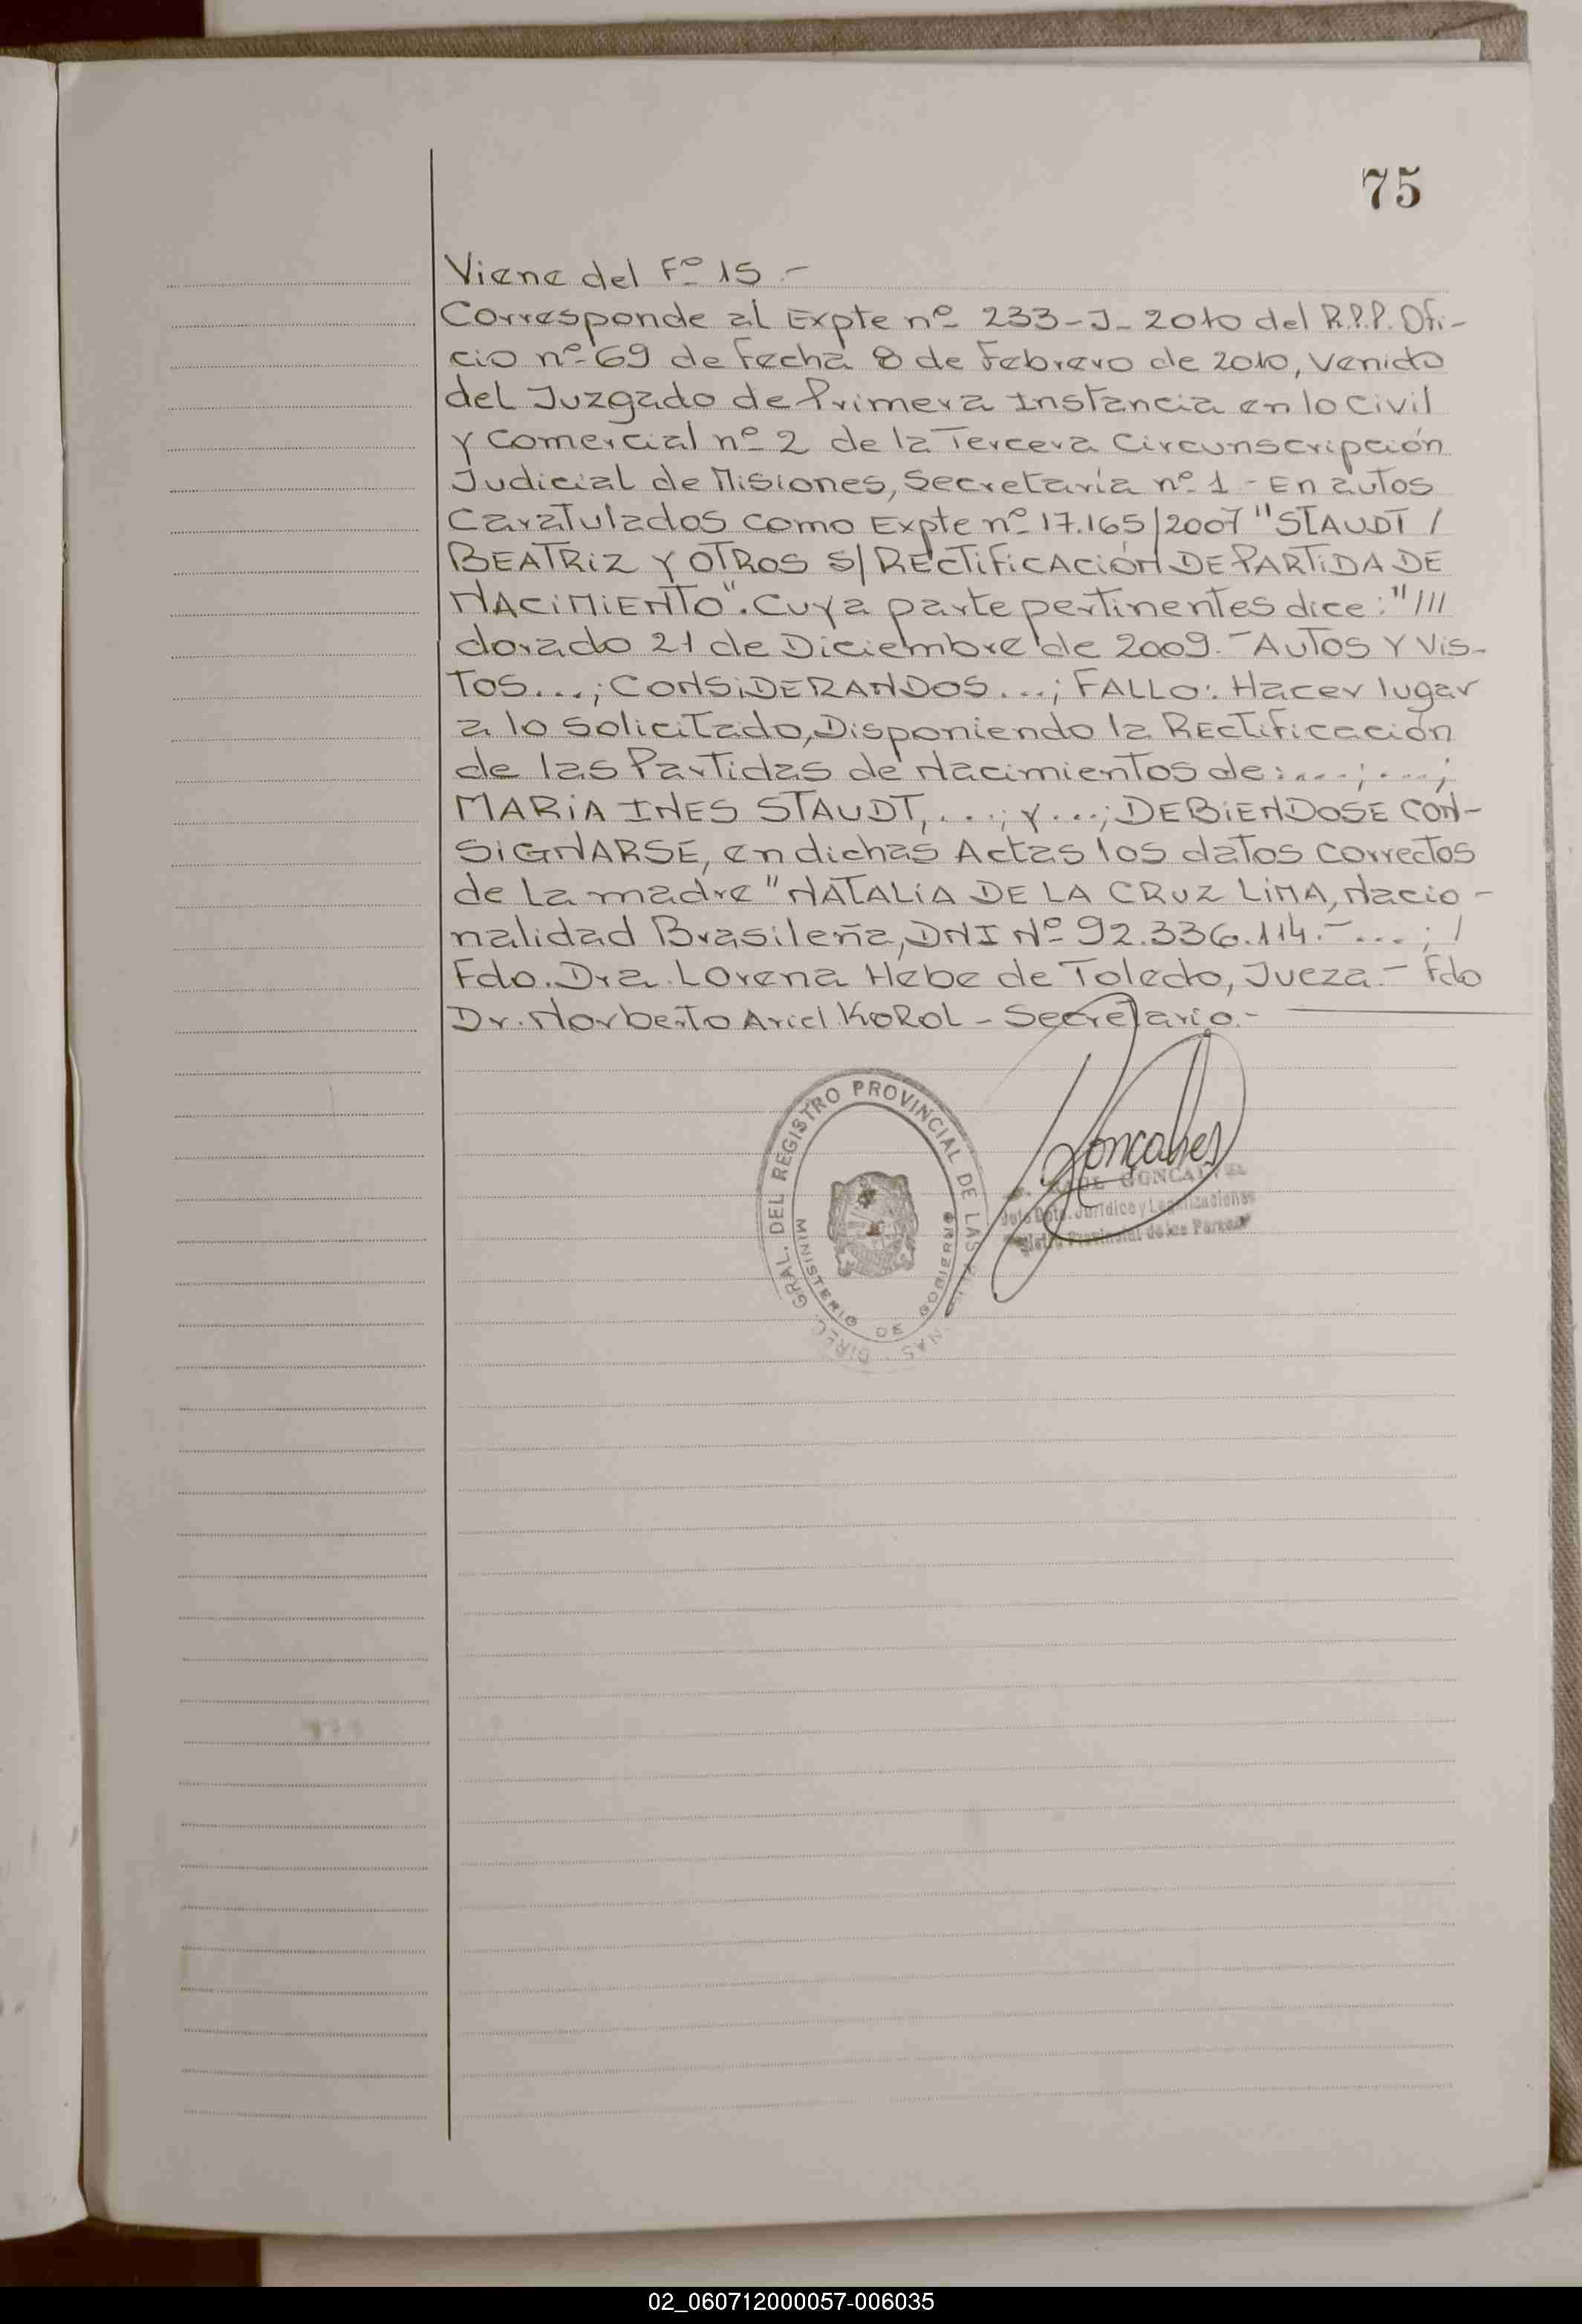 75
Viene del Fº 15.-
Corresponde al Expte nº 233-J-2010 del R.P.P. Ofi-
cio nº 69 de Fecha 8 de Febrero de 2010, venido
del Juzgado de Primera Instancia en lo Civil
y Comercial nº 2 de la Tercera Circunscripción
Judicial de Misiones, Secretaría nº 1 - En autos
Caratulados como Expte nº 17.165/2007 "STAUDT /
BEATRIZ Y OTROS S/RECTIFICACIÓN DE PARTIDA DE
NACIMIENTO". Cuya parte pertinentes dice: "///
dorado 21 de Diciembre de 2009.- AUTOS Y VIS-
TOS...; CONSIDERANDOS...; FALLO: Hacer lugar
a lo solicitado, Disponiendo la Rectificación
de las Partidas de Nacimientos de:...;...;
MARIA INES STAUDT,...; y...; DEBIENDOSE CON-
SIGNARSE, en dichas Actas los datos correctos
de la madre "NATALIA DE LA CRUZ LIMA, Nacio-
nalidad Brasileña, DNI Nº 92.336.114.-...; /
Fdo. Dra. Lorena Hebe de Toledo, Jueza.- Fdo
Dr. Norberto Ariel KOROL - Secretario.-
DIREC. GRAL. DEL REGISTRO PROVINCIAL DE LAS
MINISTERIO DE GOBIERNO
Gonçalves
Jurídico y Legalizaciones
Provincial de las Personas
02_060712000057-006035